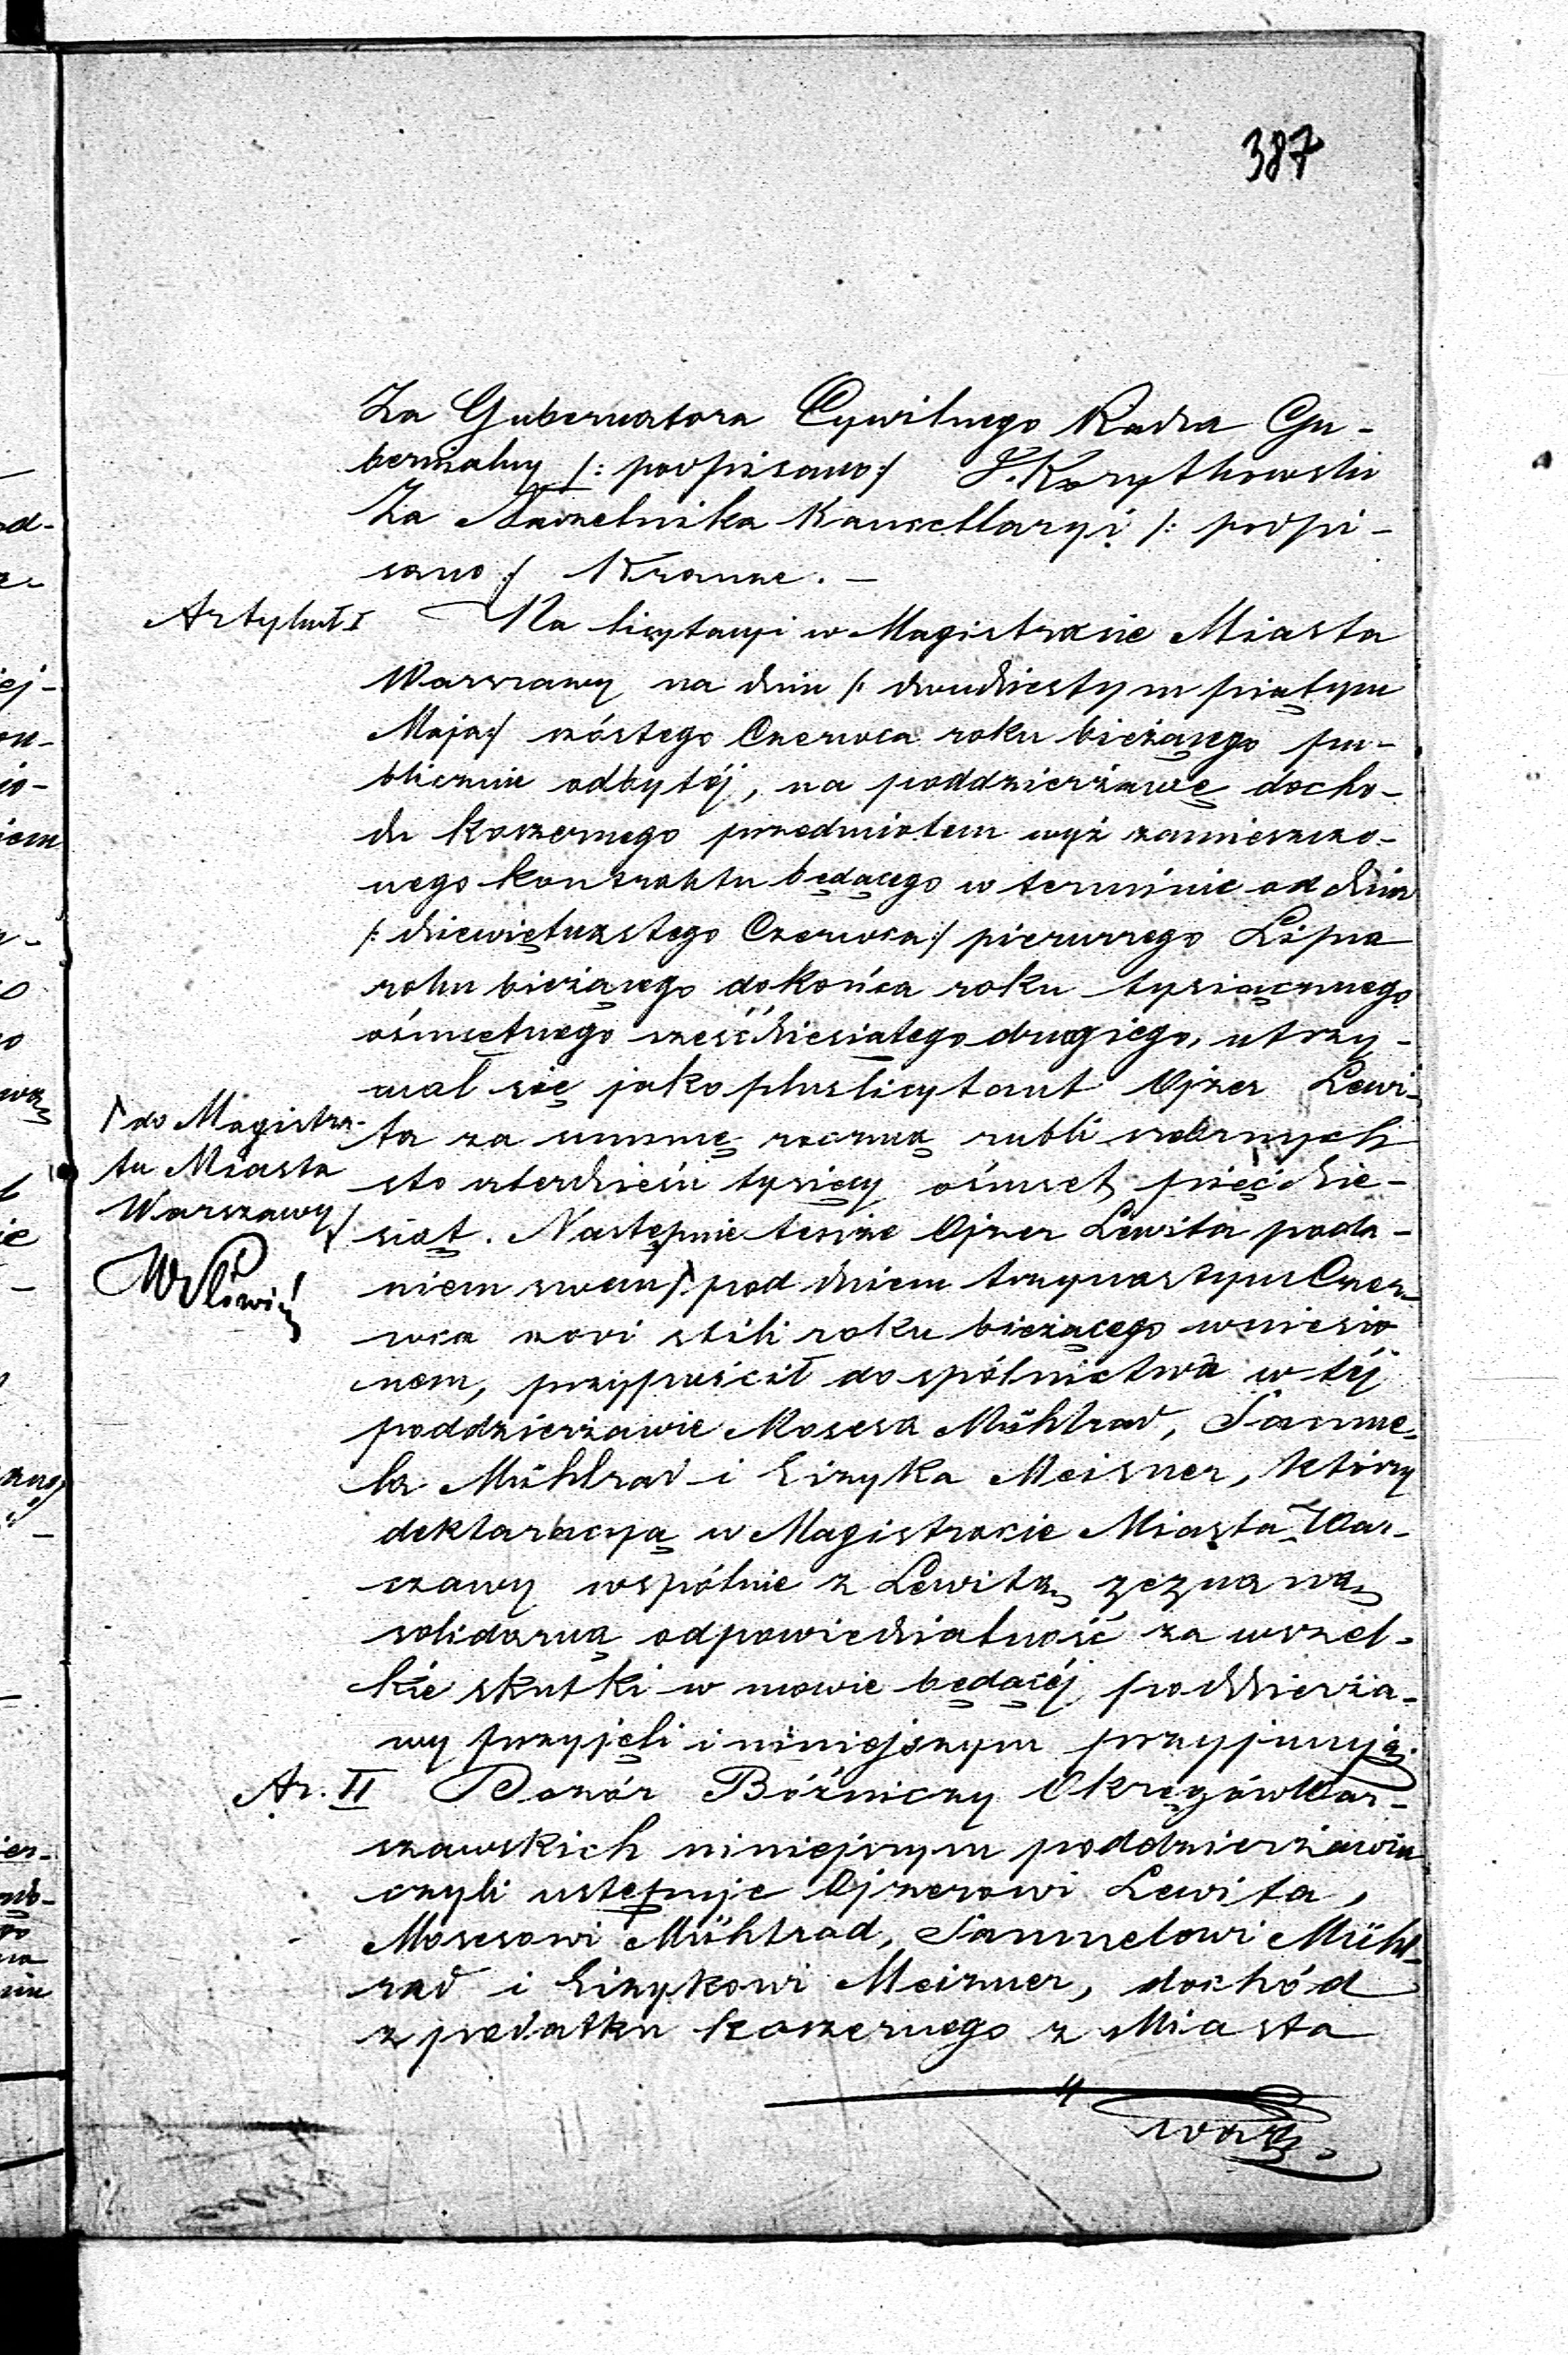 387
Za Gubernatora Cywilnego Radca Gu-
bernialny /: podpisano:/ F. Korytkowski
Za Naczelnika Kancellaryi /: podpi-
sano:/ Krauze. –
Artykuł I Na licytacyi w Magistracie Miasta
Warszawy na dniu /: dwudziestym piątym
Maja:/ szóstego Czerwca roku bieżącego pu-
blicznie odbytéj, na poddzierżawę docho-
du koszernego przedmiotem wyż zamieszczo-
nego kontraktu będącego w terminie od dnia
/: dziewiętnastego Czerwca:/ pierwszego Lipca
roku bieżącego do końca roku tysiącznego
ośmsetnego sześćdziesiątego drugiego, utrzy-
mał się jako pluslicytant Ojzer Lewi-
ta za summę roczną rubli srebrnych
sto czterdzieści tysięcy ośmset pięćdzie-
siąt. Następnie tenże Ojzer Lewita poda-
niem swem /: pod dniem trzynastym Czer-
wca novi stili roku bieżącego wniesio
nem, przypuścił do spólnictwa w téj
poddzierżawie Mosesa Mühlrad, Samue-
la Mühlrad i Eizyka Meisner, którzy
deklaracyą w Magistracie Miasta War-
szawy wspólnie z Lewitą zeznaną
solidarną odpowiedzialność za wszel-
kie skutki w mowie będącéj poddzierża-
wy przyjęli i niniejszym przyjmują.
/ do Magistra-
tu Miasta
Warszawy /
Ar. II Dozór Bóżniczy Okręgów War-
szawskich niniejszym poddzierżawia
czyli ustępuje Ojzerowi Lewita,
Mosesowi Mühlrad, Samuelowi Mühl-
rad i Eizykowi Meizner, dochód
z podatku koszernego z Miasta